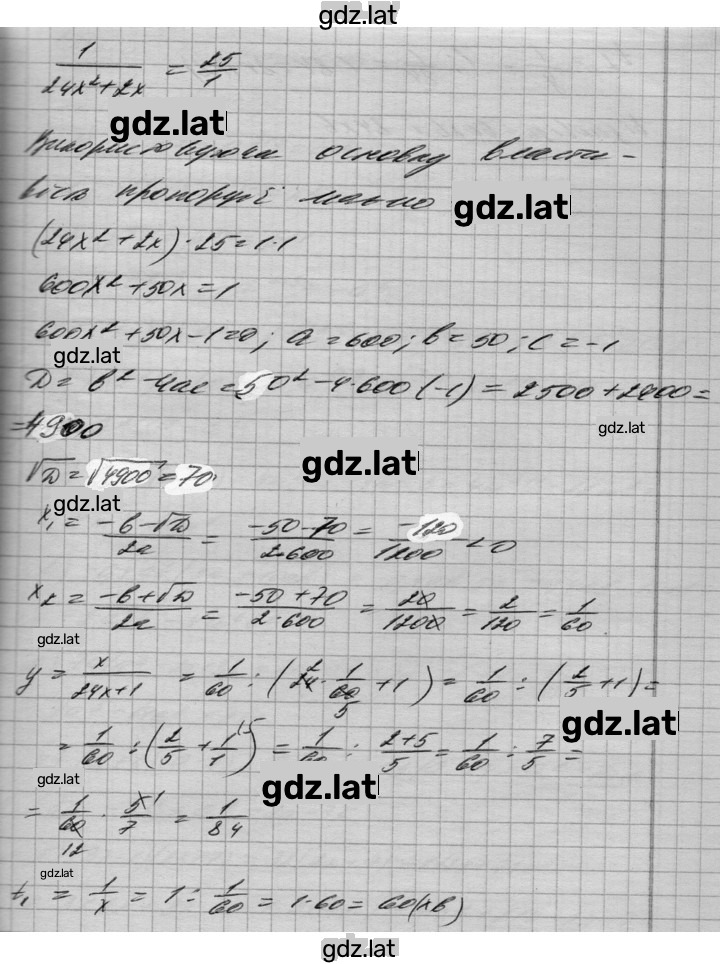 gdz.lat
1/(24x²+2x) = 25/1
gdz.lat
Використовуючи основну власти-
вість пропорції маємо
gdz.lat
(24x²+2x)·25=1·1
600x²+50x=1
600x²+50x-1=0; a=600; b=50; c=-1
gdz.lat
D=b²-4ac=50²-4·600(-1)=2500+2400=
gdz.lat
=4900
gdz.lat
√D=√4900=70.
gdz.lat
x₁=(-b-√D)/2a=(-50-70)/(2·600)=-120/1200<0
x₂=(-b+√D)/2a=(-50+70)/(2·600)=20/1200=2/120=1/60.
gdz.lat
y=x/(24x+1)=1/60:(24·1/60+1)=1/60:(2/5+1)=
gdz.lat
=1/60:(2/5+1/1)=1/60:(2+5)/5=1/60:7/5=
gdz.lat
gdz.lat
=1/60·5/7=1/84
gdz.lat
t₁=1/x=1:1/60=1·60=60(хв)
gdz.lat